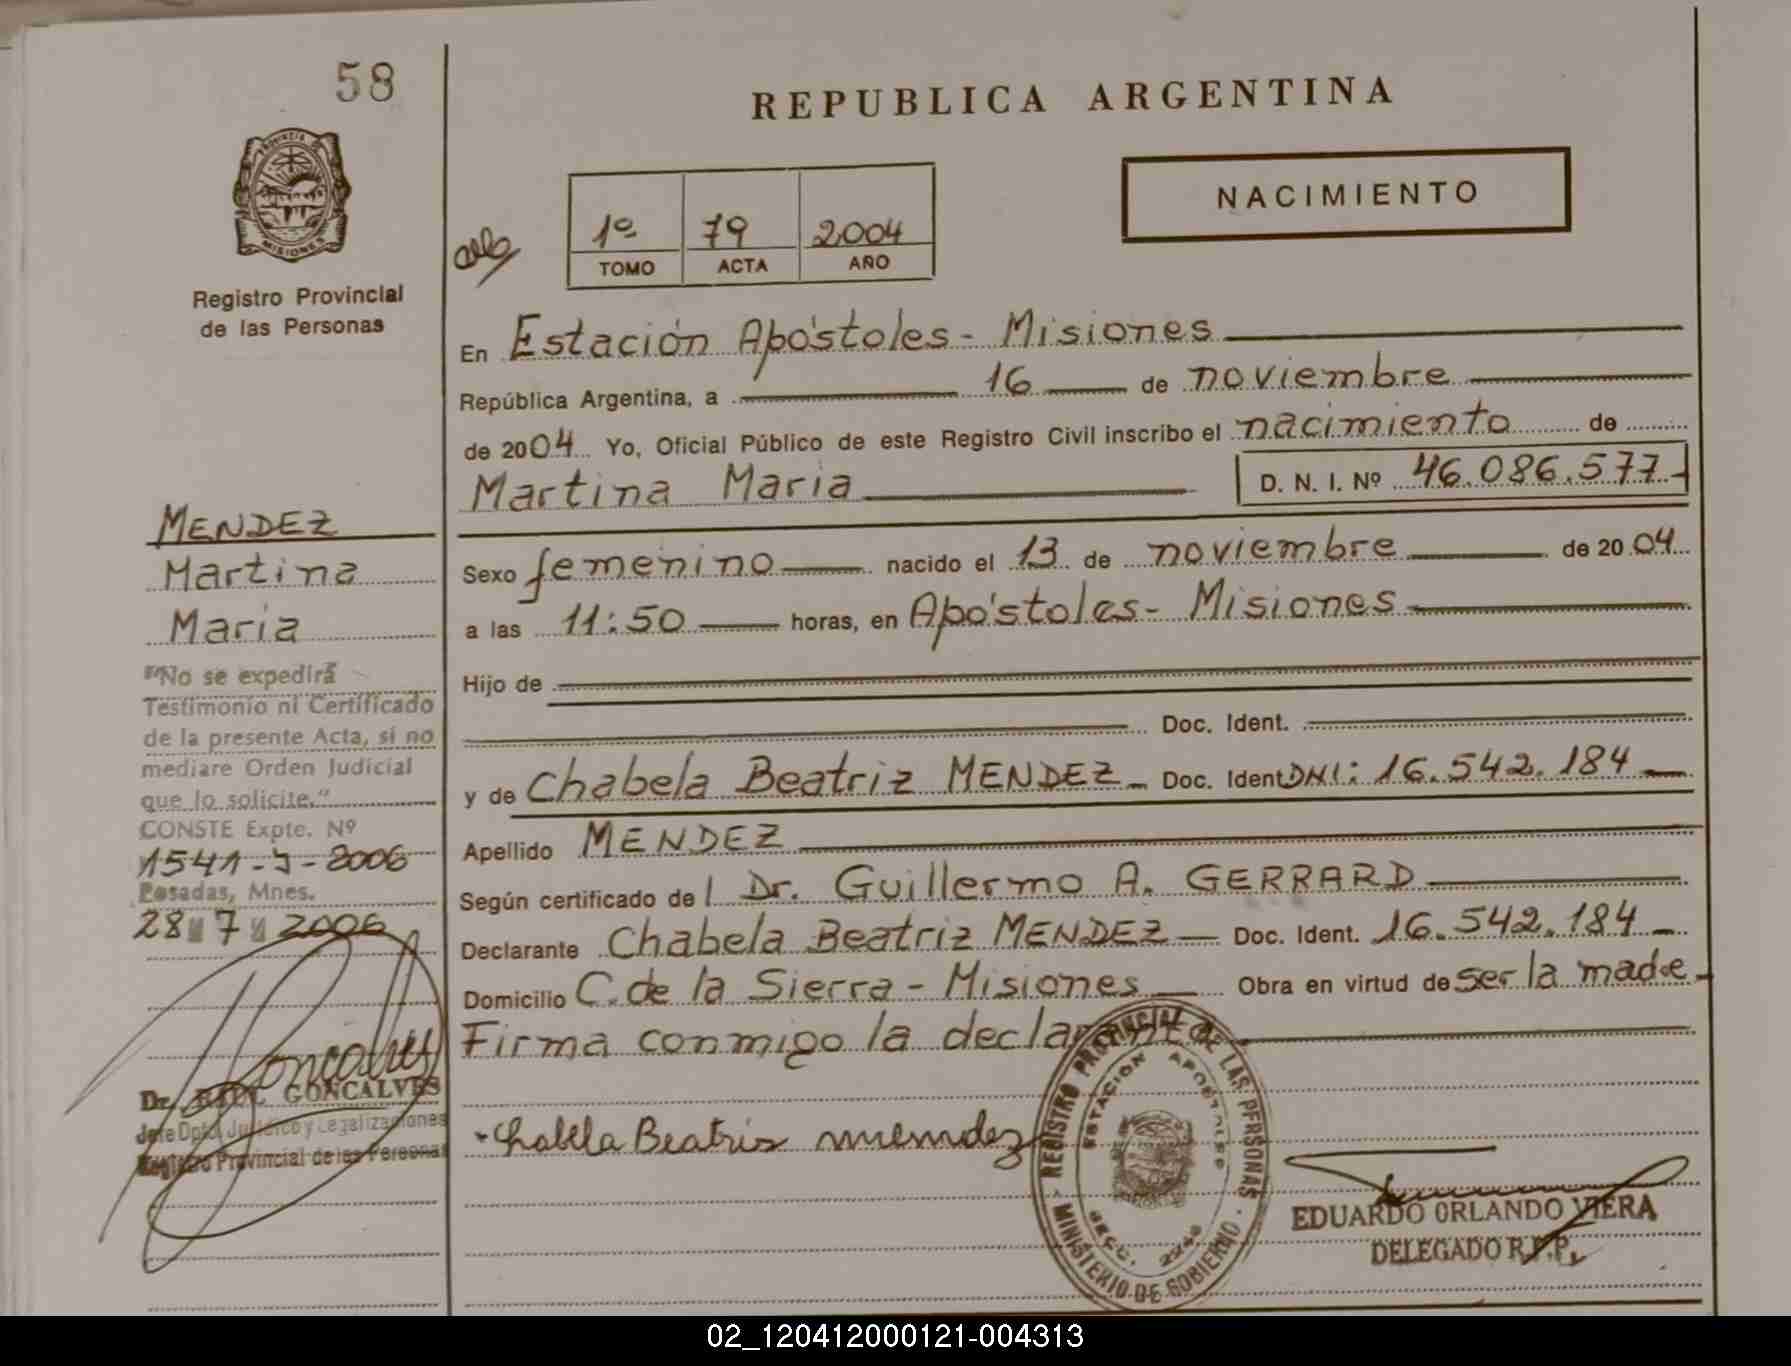 58
REPUBLICA ARGENTINA
PROVINCIA DE
MISIONES
Registro Provincial
de las Personas
1º 79 2004
TOMO ACTA AÑO
NACIMIENTO
En Estación Apóstoles - Misiones
República Argentina, a 16 de noviembre
de 2004 Yo, Oficial Público de este Registro Civil inscribo el nacimiento de
Martina Maria D. N. I. Nº 46.086.577
Sexo femenino nacido el 13 de noviembre de 2004
a las 11:50 horas, en Apóstoles - Misiones
Hijo de
Doc. Ident.
y de Chabela Beatriz MENDEZ Doc. Ident DNI: 16.542.184
Apellido MENDEZ
Según certificado de l Dr. Guillermo A. GERRARD
Declarante Chabela Beatriz MENDEZ Doc. Ident. 16.542.184
Domicilio C. de la Sierra - Misiones Obra en virtud de ser la madre
Firma conmigo la declarante
Chabela Beatris mendez
REGISTRO PROVINCIAL DE LAS PERSONAS
MINISTERIO DE GOBIERNO
ESTACION APOSTOLES
SECC.
EDUARDO ORLANDO VIERA
DELEGADO R.P.P.
MENDEZ
Martina
Maria
"No se expedirá
Testimonio ni Certificado
de la presente Acta, si no
mediare Orden Judicial
que lo solicite."
CONSTE Expte. Nº
1541-J-2006
Posadas, Mnes.
28 7 2006
Goncalves
Dr. RAUL GONCALVES
Jefe Dpto. Jurídico y Legalizaciones
Registro Provincial de las Personas
02_120412000121-004313